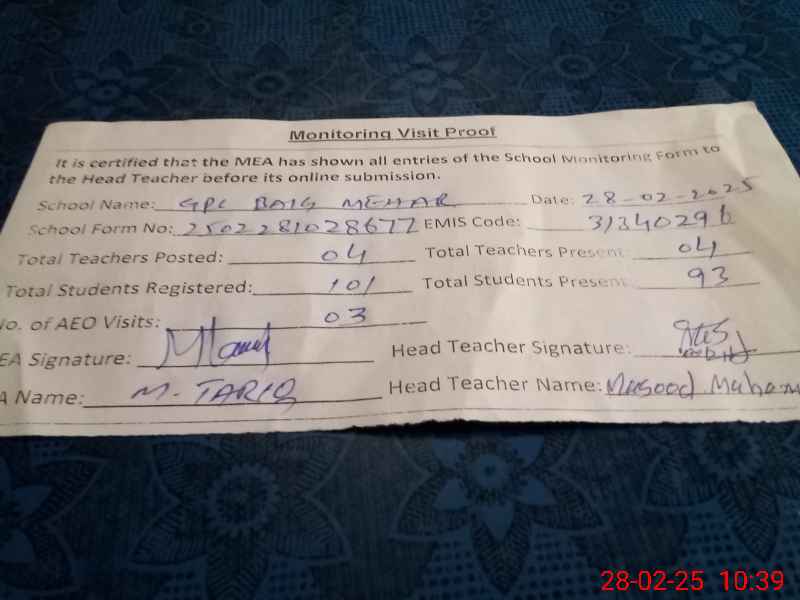 Monitoring Visit Proof
It is certified that the MEA has shown all entries of the School Monitoring Form to
the Head Teacher before its online submission.
School Name: GPL BAIG MEHAR Date: 28-02-2025
School Form No: 2502281028677 EMIS Code: 31340296
Total Teachers Posted: 04 Total Teachers Present: 04
Total Students Registered: 101 Total Students Present: 93
No. of AEO Visits: 03
EA Signature: Head Teacher Signature:
A Name: M. TARIQ Head Teacher Name: Masood Muham
28-02-25 10:39